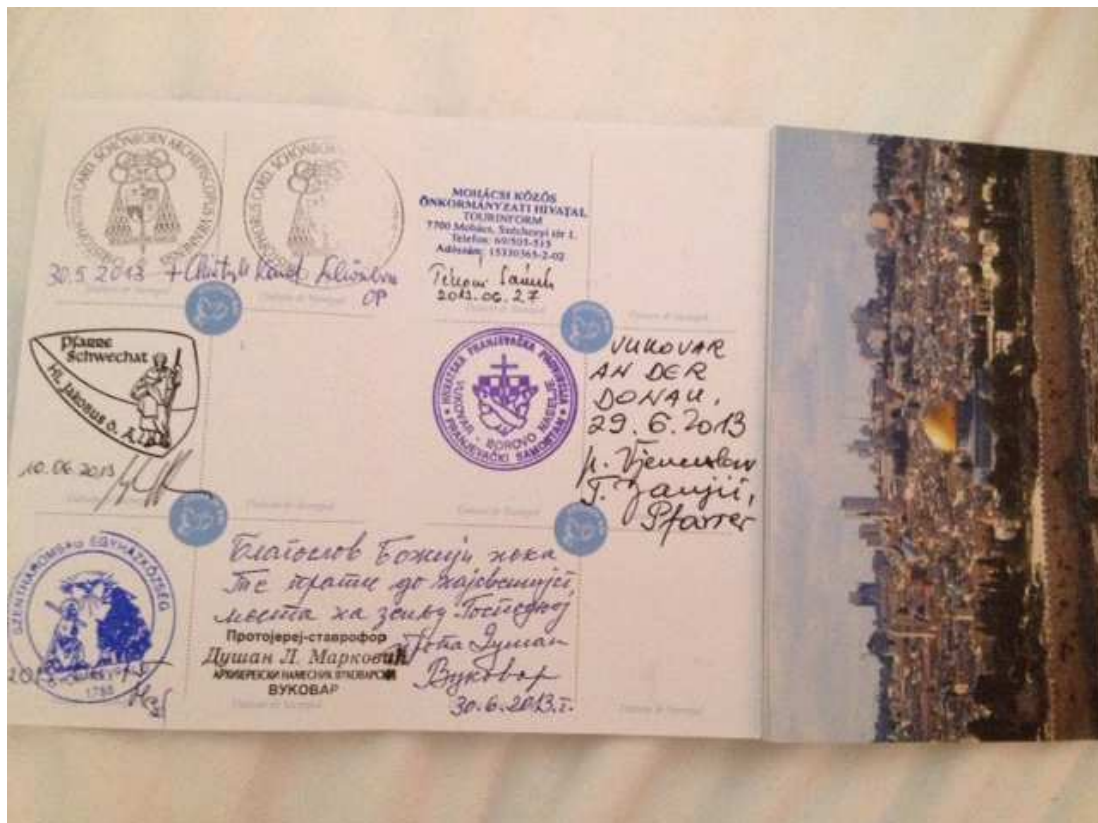 CHRISTOPHORUS CARD. SCHÖNBORN ARCHIEPISCOPUS VIENNENSIS
CARD. SCHÖNBORN
30.5.2013 + Christoph Kard. Schönborn
OP
MOHÁCSI KÖZÖS
ÖNKORMÁNYZATI HIVATAL
TOURINFORM
7700 Mohács, Széchenyi tér 1.
Telefon: 69/505-515
Adószám: 15330365-2-02
2013.06.27
Pfarre
Schwechat
Hl. Jakobus d. Ä.
10.06.2013
HRVATSKA FRANJEVAČKA PROVINCIJA
VUKOVAR - BOROVO NASELJE
FRANJEVAČKI SAMOSTAN
VUKOVAR
AN DER
DONAU,
29.6.2013
Pfarrer
SZENTHÁROMSÁG EGYHÁZKÖZSÉG
Благослов Божији нека
те прати до најсветијег
места на земљи Господњој
Протојереј-ставрофор
Душан Л. Марковић
АРХИЈЕРЕЈСКИ НАМЕСНИК ВУКОВАРСКИ
ВУКОВАР
Прота Душан
Вуковар
30.6.2013.г.